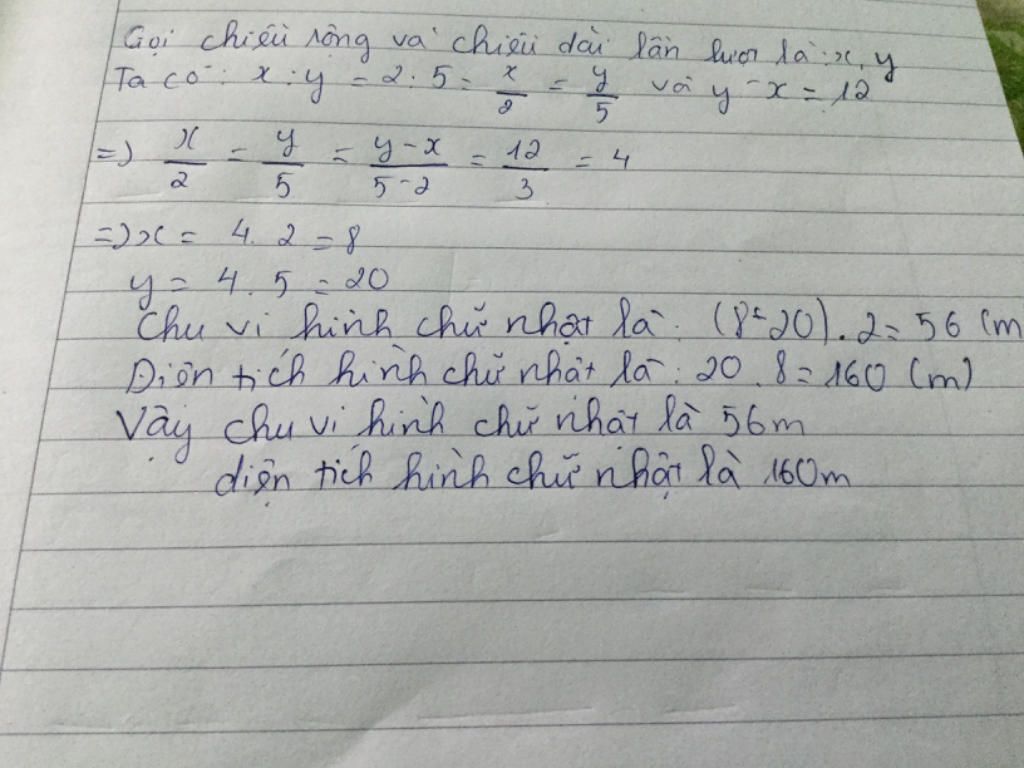 Gọi chiều rộng và chiều dài lần lượt là: x, y
Ta có: x : y = 2 : 5 = x/2 = y/5 và y - x = 12
=> x/2 = y/5 = y-x/5-2 = 12/3 = 4
=> x = 4. 2 = 8
y = 4. 5 = 20
Chu vi hình chữ nhật là: (8 20) . 2 = 56 (m
Diện tích hình chữ nhật là: 20 . 8 = 160 (m)
Vậy chu vi hình chữ nhật là 56m
diện tích hình chữ nhật là 160m